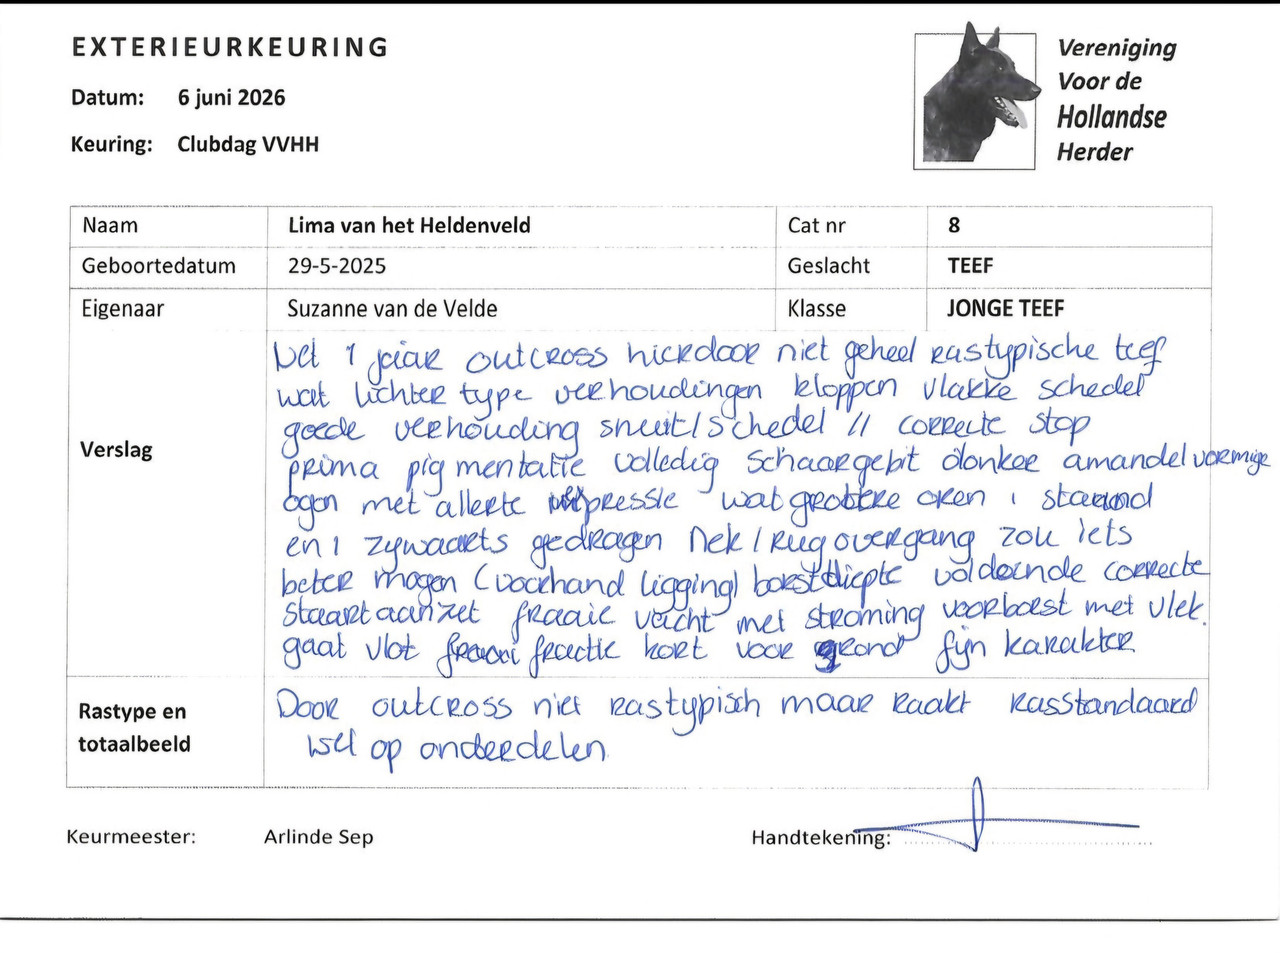 EXTERIEURKEURING
Datum: 6 juni 2026
Keuring: Clubdag VVHH
Vereniging
Voor de
Hollandse
Herder
Naam Lima van het Heldenveld Cat nr 8
Geboortedatum 29-5-2025 Geslacht TEEF
Eigenaar Suzanne van de Velde Klasse JONGE TEEF
Verslag
1 jaar outcross hierdoor niet geheel rastypische teef
wat lichter type verhoudingen kloppen vlakke schedel
goede verhouding snuit/schedel // correcte stop
prima pigmentatie volledig schaargebit donker amandelvormige
ogen met allerte wat grotere oren 1 staand
en 1 zijwaarts gedragen Nek/rugovergang zou iets
beter mogen (voorhand ligging) borstdiepte voldoende correcte
staartaanzet fraaie vacht met stroming voorborst met vlek.
gaat vlot fractie kort voor grond fijn karakter
Rastype en
totaalbeeld
Door outcross niet rastypisch maar raakt rasstandaard
wel op onderdelen
Keurmeester: Arlinde Sep Handtekening: